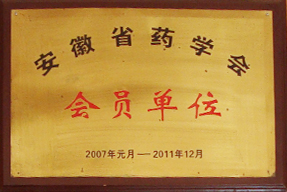 安徽省药学会
会员单位
2007年元月—2011年12月